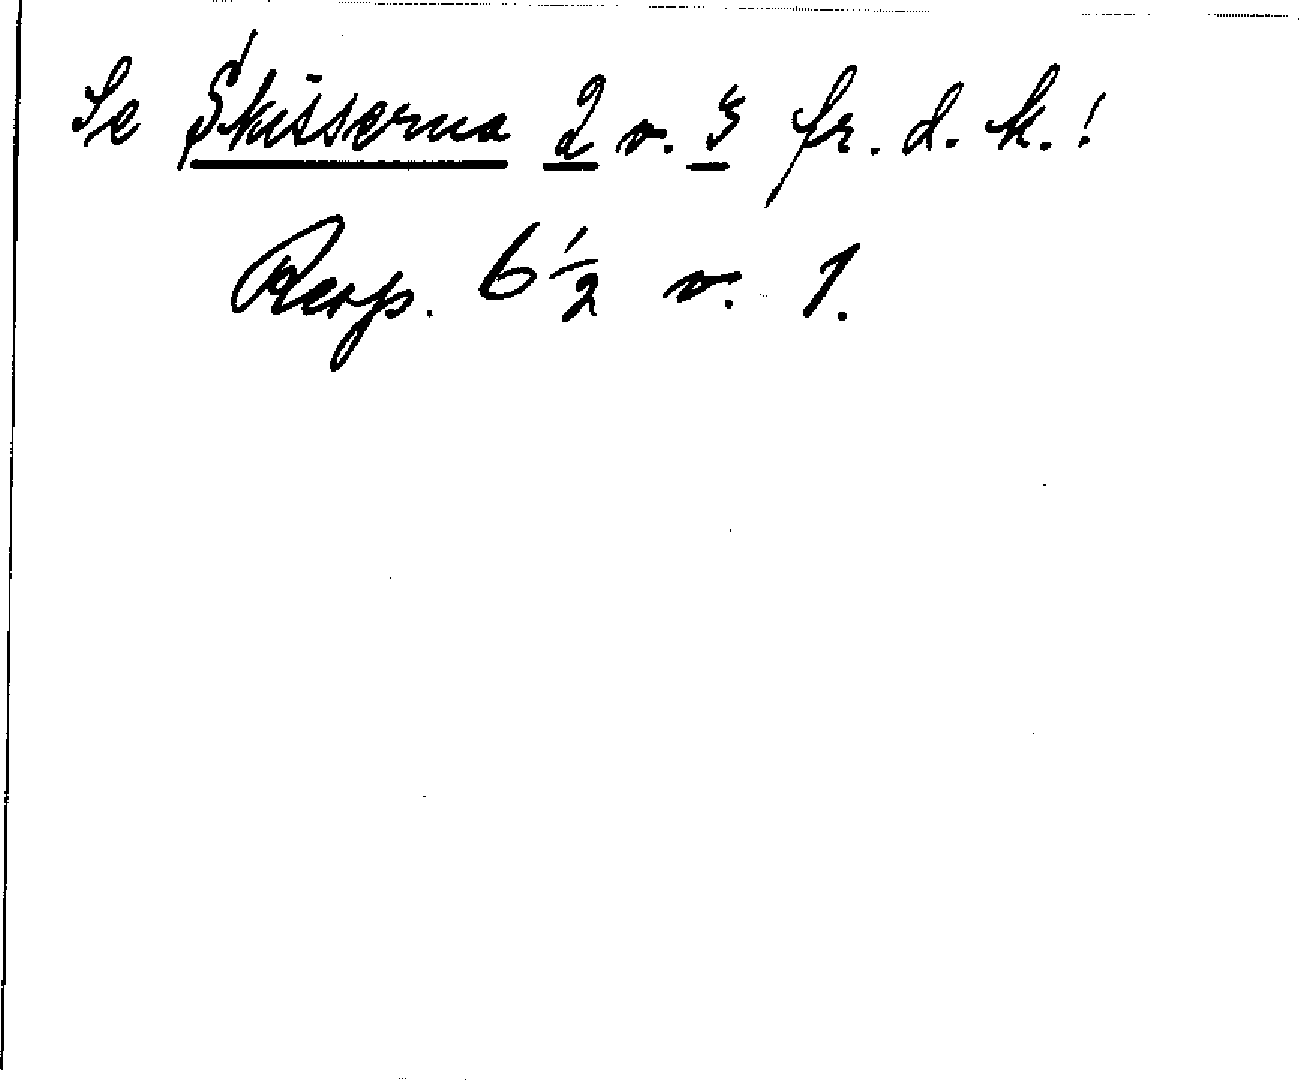 Se Skisserna 2 v. 3 fr. d. k.!
Resp. 6 1/2 v. 1.